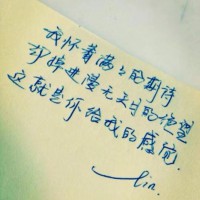 我怀着满满的期待
却掉进漫无天日的绝望
这就是你给我的感觉.
—lin.